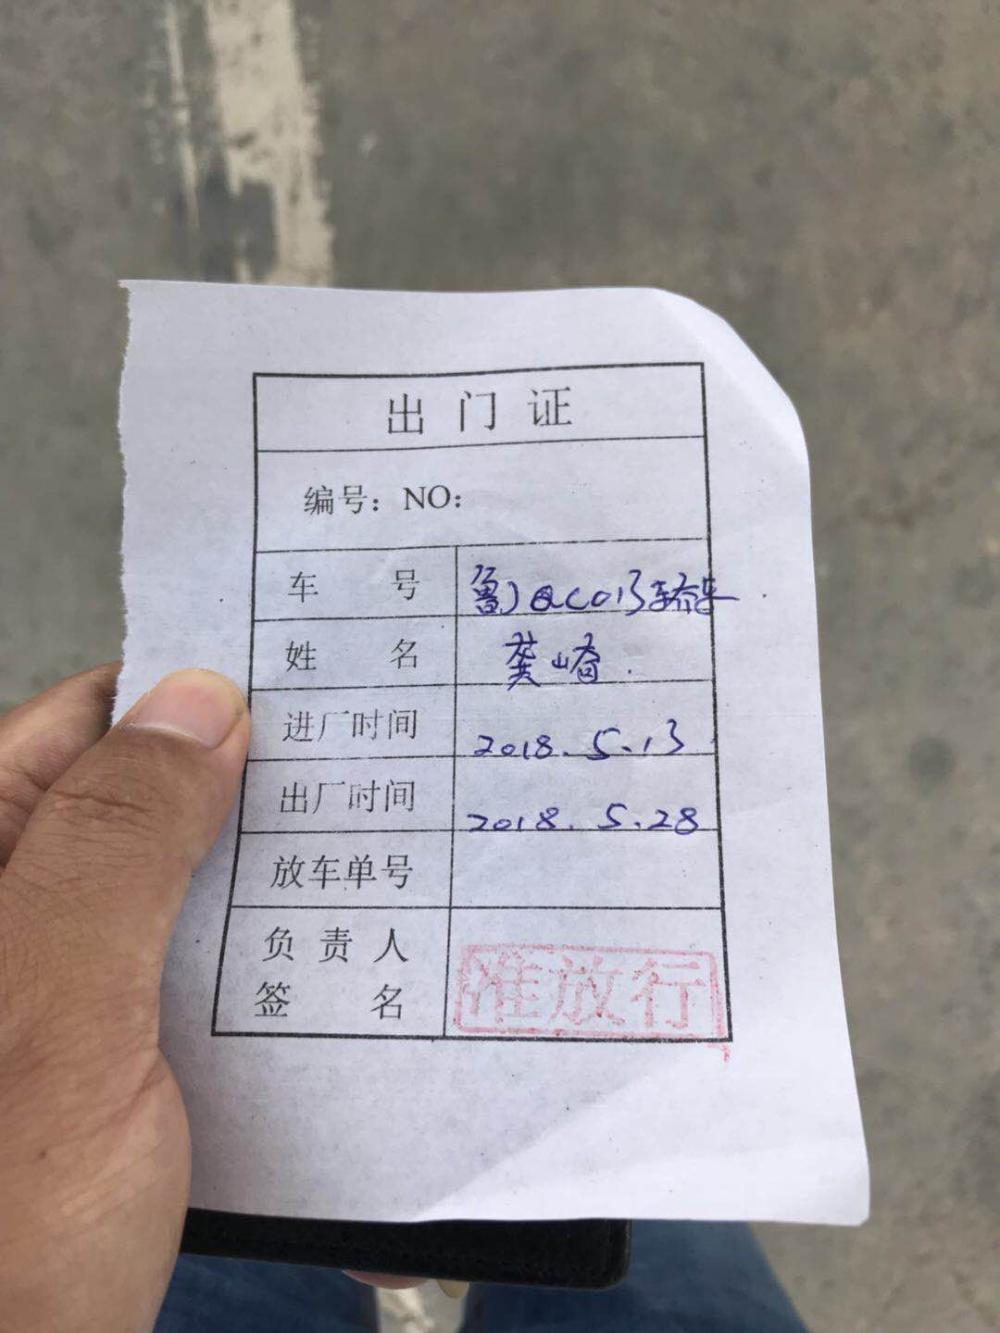 出门证
编号：NO：
车号 鲁JQC013轿车
姓名 龚崎
进厂时间 2018.5.13
出厂时间 2018.5.28
放车单号
负责人
签名 准放行